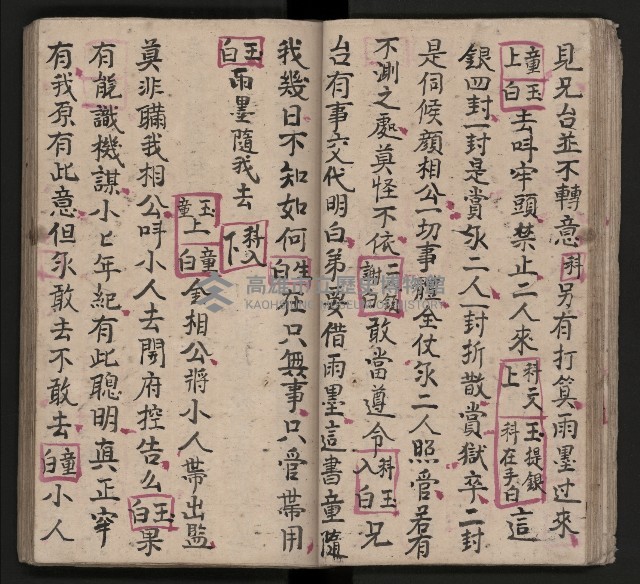 見兄台並不轉意科另有打算雨墨過來
童玉上白去呌牢頭禁止二人來科又上玉提銀科在手白這
銀四封一封是賞你二人一封折散賞獄卒二封
是伺候顏相公一切事體全仗你二人照管若有
不測之處莫怪不依二獄謝白敢當遵令科入玉白兄
台有事交代明白弟要借雨墨這書童隨
我幾日不知如何生白在只無事只管帶用
玉白雨墨隨我去科入下
玉童上童白金相公將小人帶出監
莫非瞞我相公呌小人去開府控告么玉白果
有能識機謀小七年紀有此聰明真正罕
有我原有此意但你敢去不敢去童白小人
高雄市立歷史博物館
KAOHSIUNG MUSEUM OF HISTORY